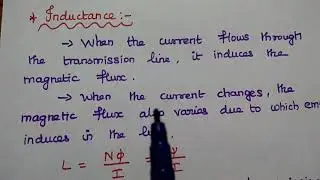 * Inductance :-
→ When the current flows through
the transmission line, it induces the
magnetic flux.
→ When the current changes, the
magnetic flux also varies due to which em
induces in the
L = Nϕ/I =